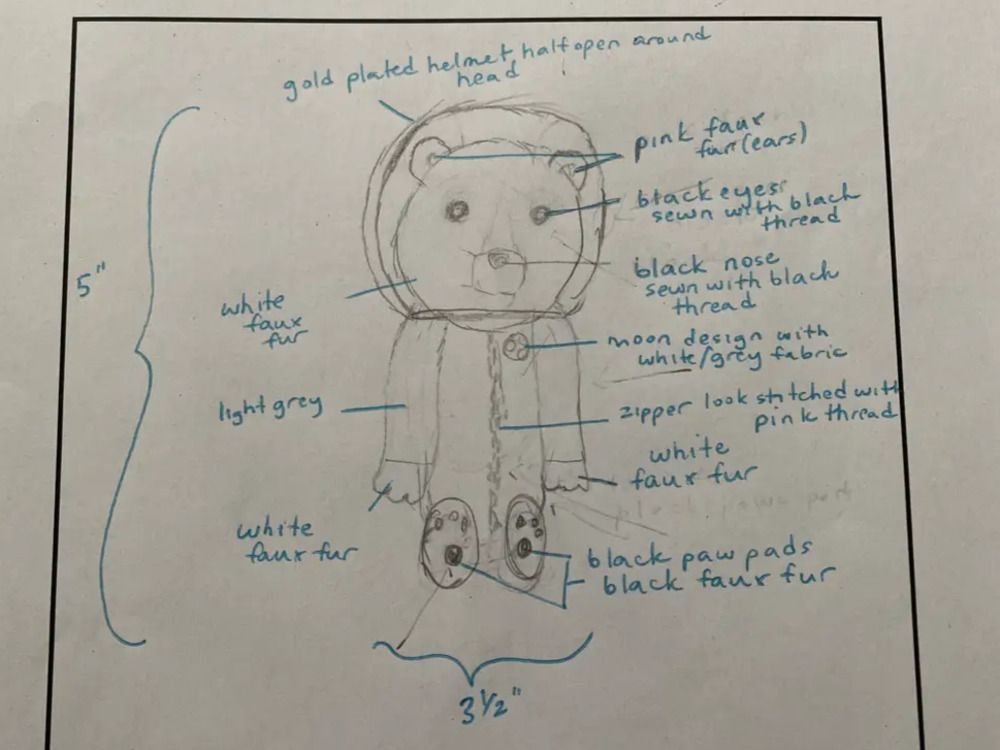 gold plated helmet half open around
head
pink faux
fur (ears)
black eyes
sewn with black
thread
black nose
sewn with black
thread
5"
white
faux
fur
moon design with
white/grey fabric
light grey
zipper look stitched with
pink thread
white
faux fur
white
faux fur
black paw pads
black faux fur
3 1/2"